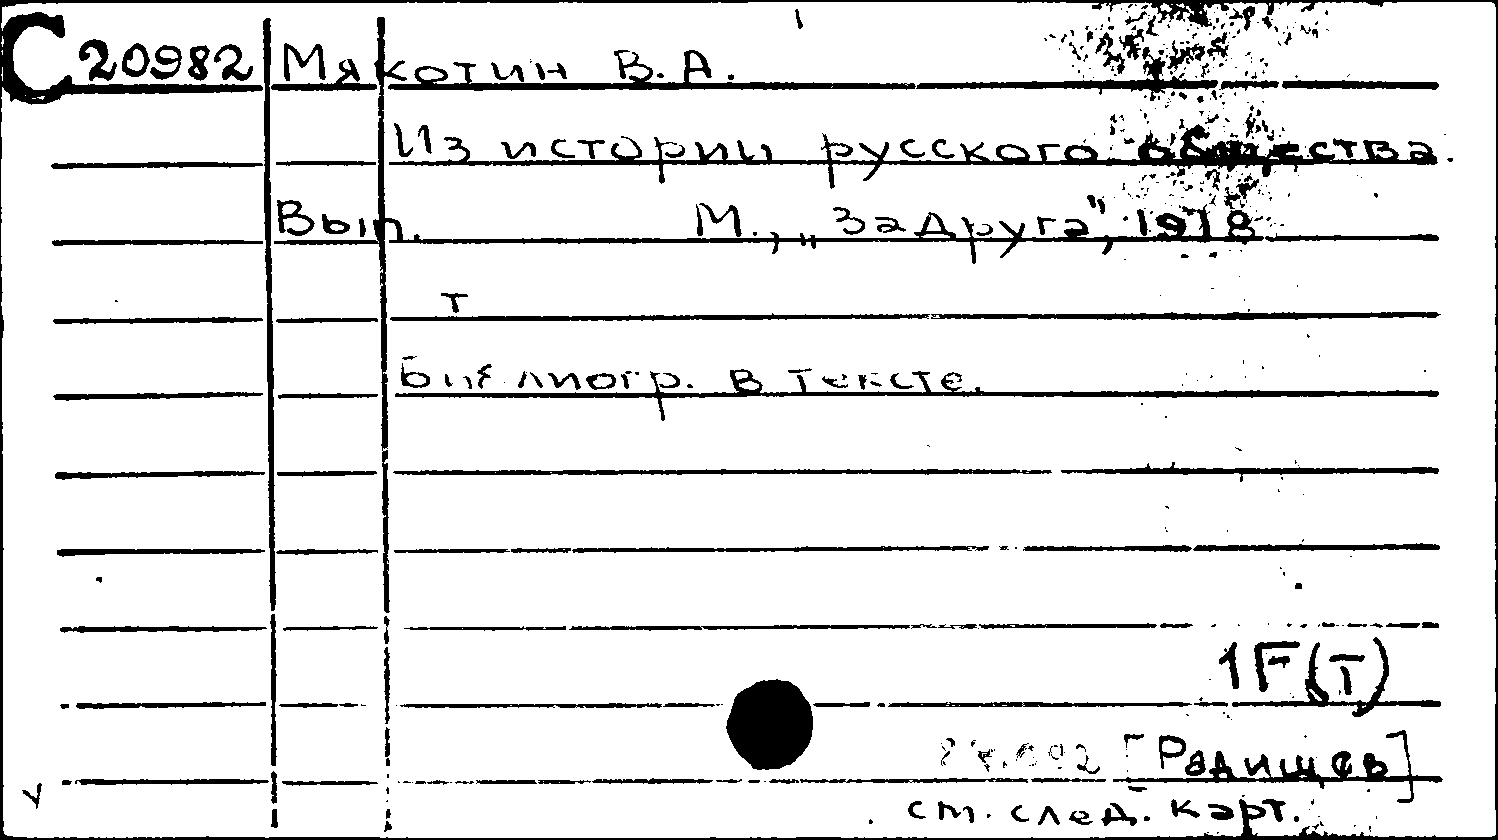 С20982 Мякотин В. А.
Из истории русского общества.
Вып. М., „Задруга", 1918
т
Библиогр. в тексте.
1F(Т)
[Радищев]
см. след. карт.